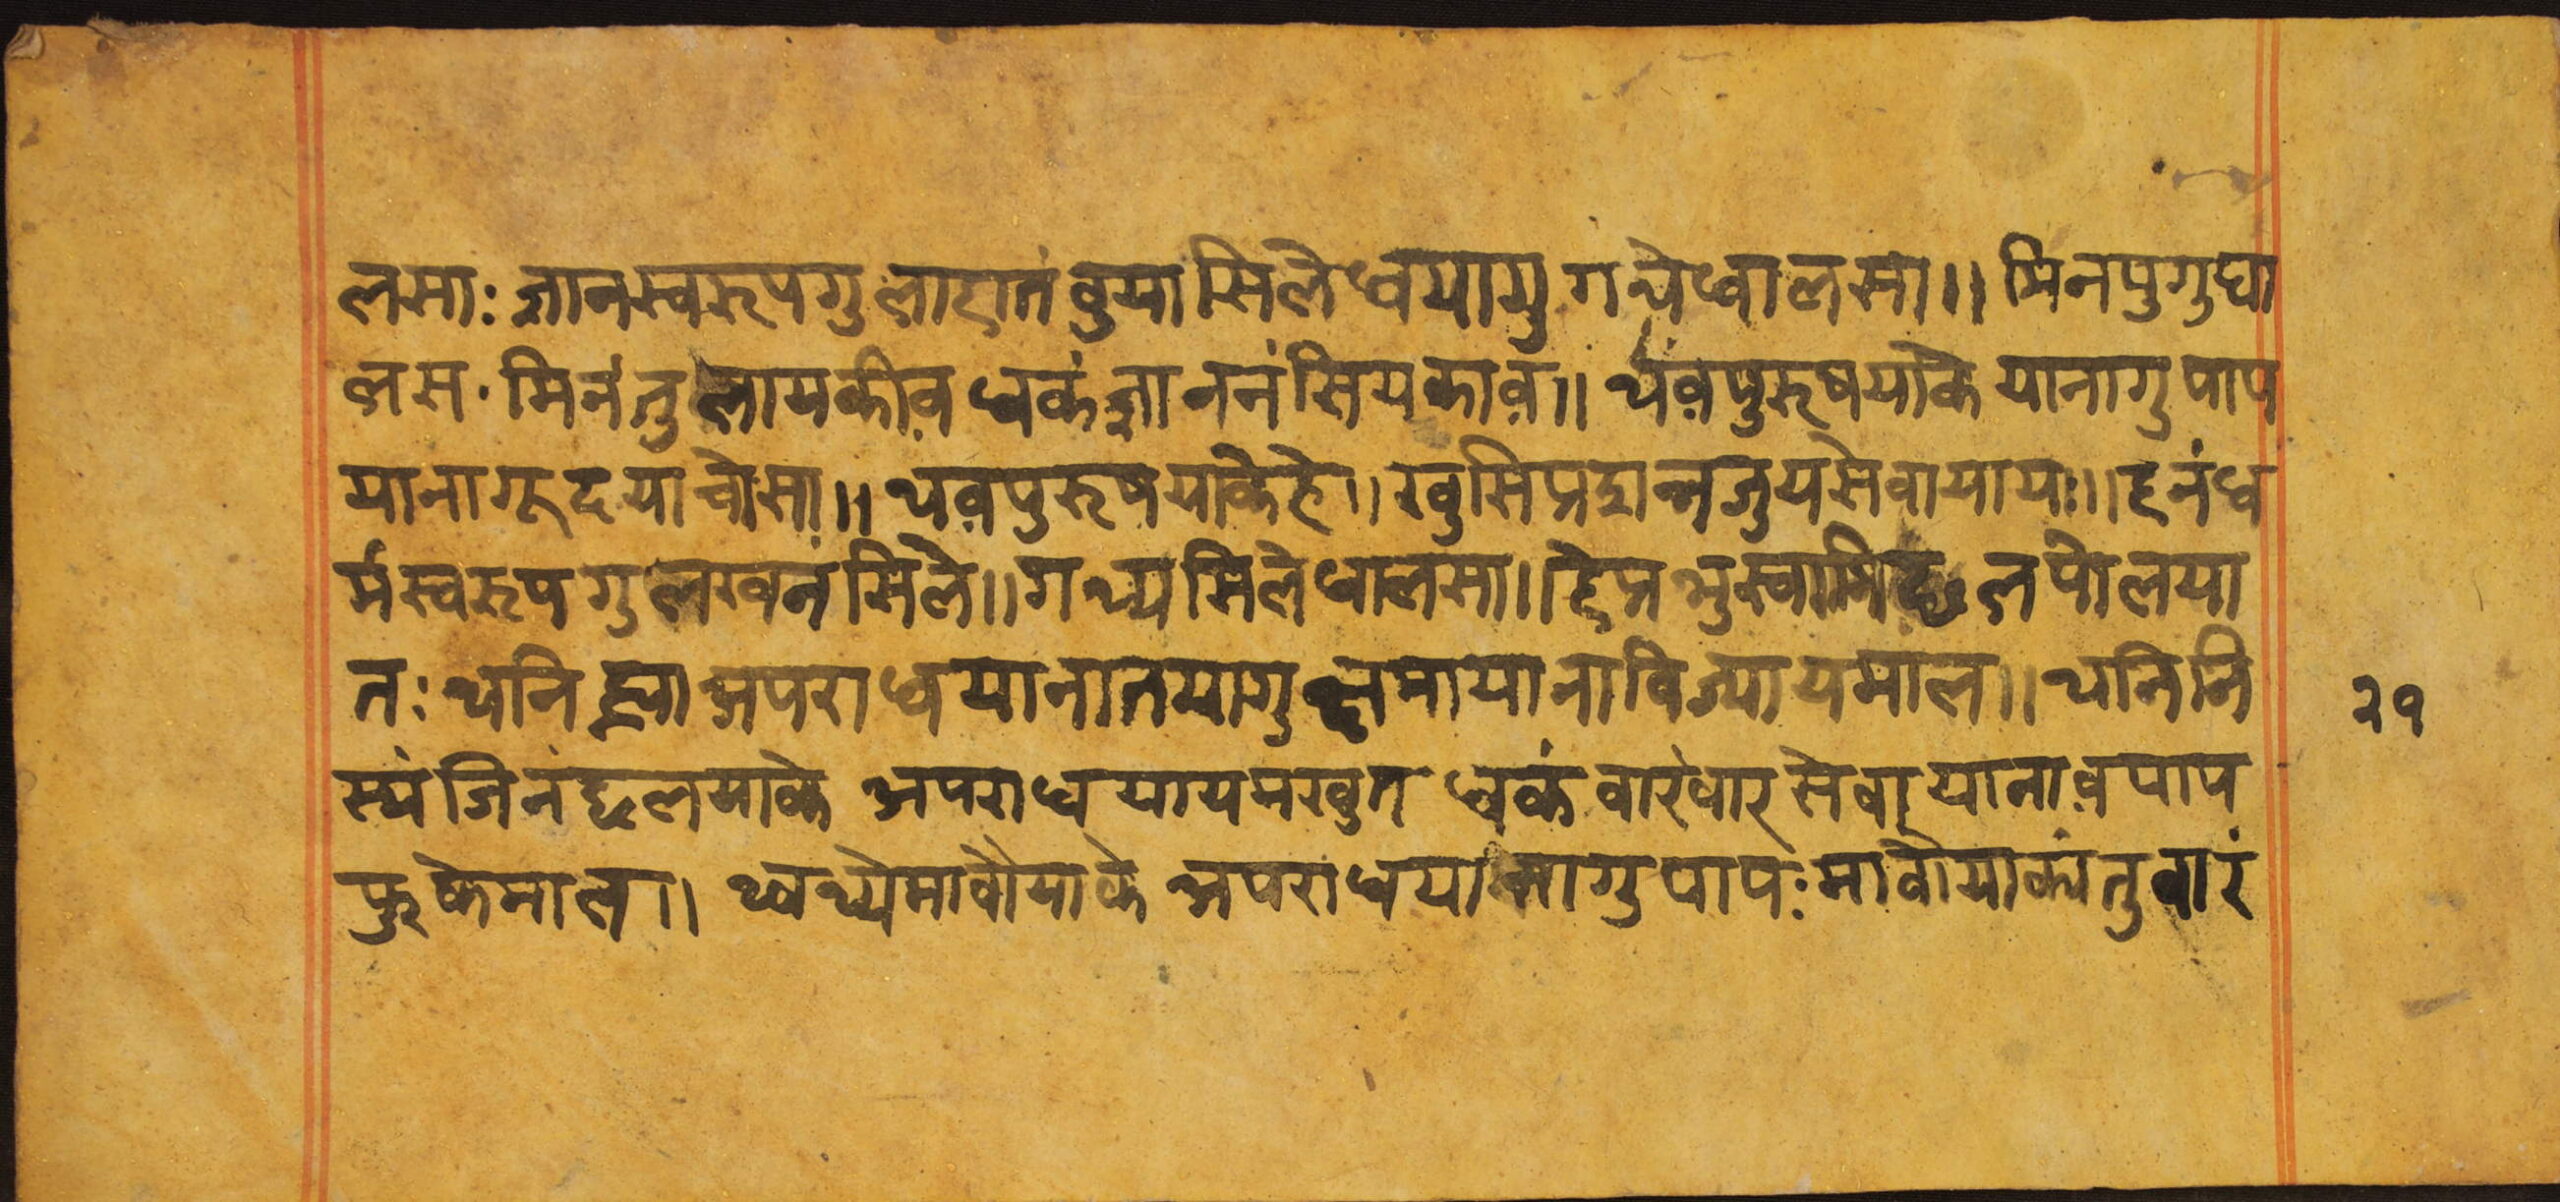 लसाः ज्ञानस्वरूपगु लाहातं वुया सिले ध्वयागु गथे ध्वालसा ॥ मिनपुगुघा
लस · मिनं तु लायकीव़ धकं ज्ञाननं सियकाव़ ॥ थंव़पुरूषयाके यानागु पाप
यानागू दयाचोसा ॥ थव़पुरूषयाकेहे ॥ खुसिप्रशन्नजुय सेवायायः ॥ हनं ध
र्मस्वरूपगु लखनं सिले ॥ गथ्य सिले धालसा ॥ हे प्रभुस्वामि छलपोलया
तः थनि ह्या अपराधयानातयागु क्षमायाना विज्यायमाल ॥ थनिनि
स्यं जिनं छलयाके अपराधयायमखुत धकं वारंवार सेवायानाव़ पाप
फुकेमाल ॥ थ्वथ्ये मावौयाके अपराधयानागु पापः मावौयाकां तु वारं
२१